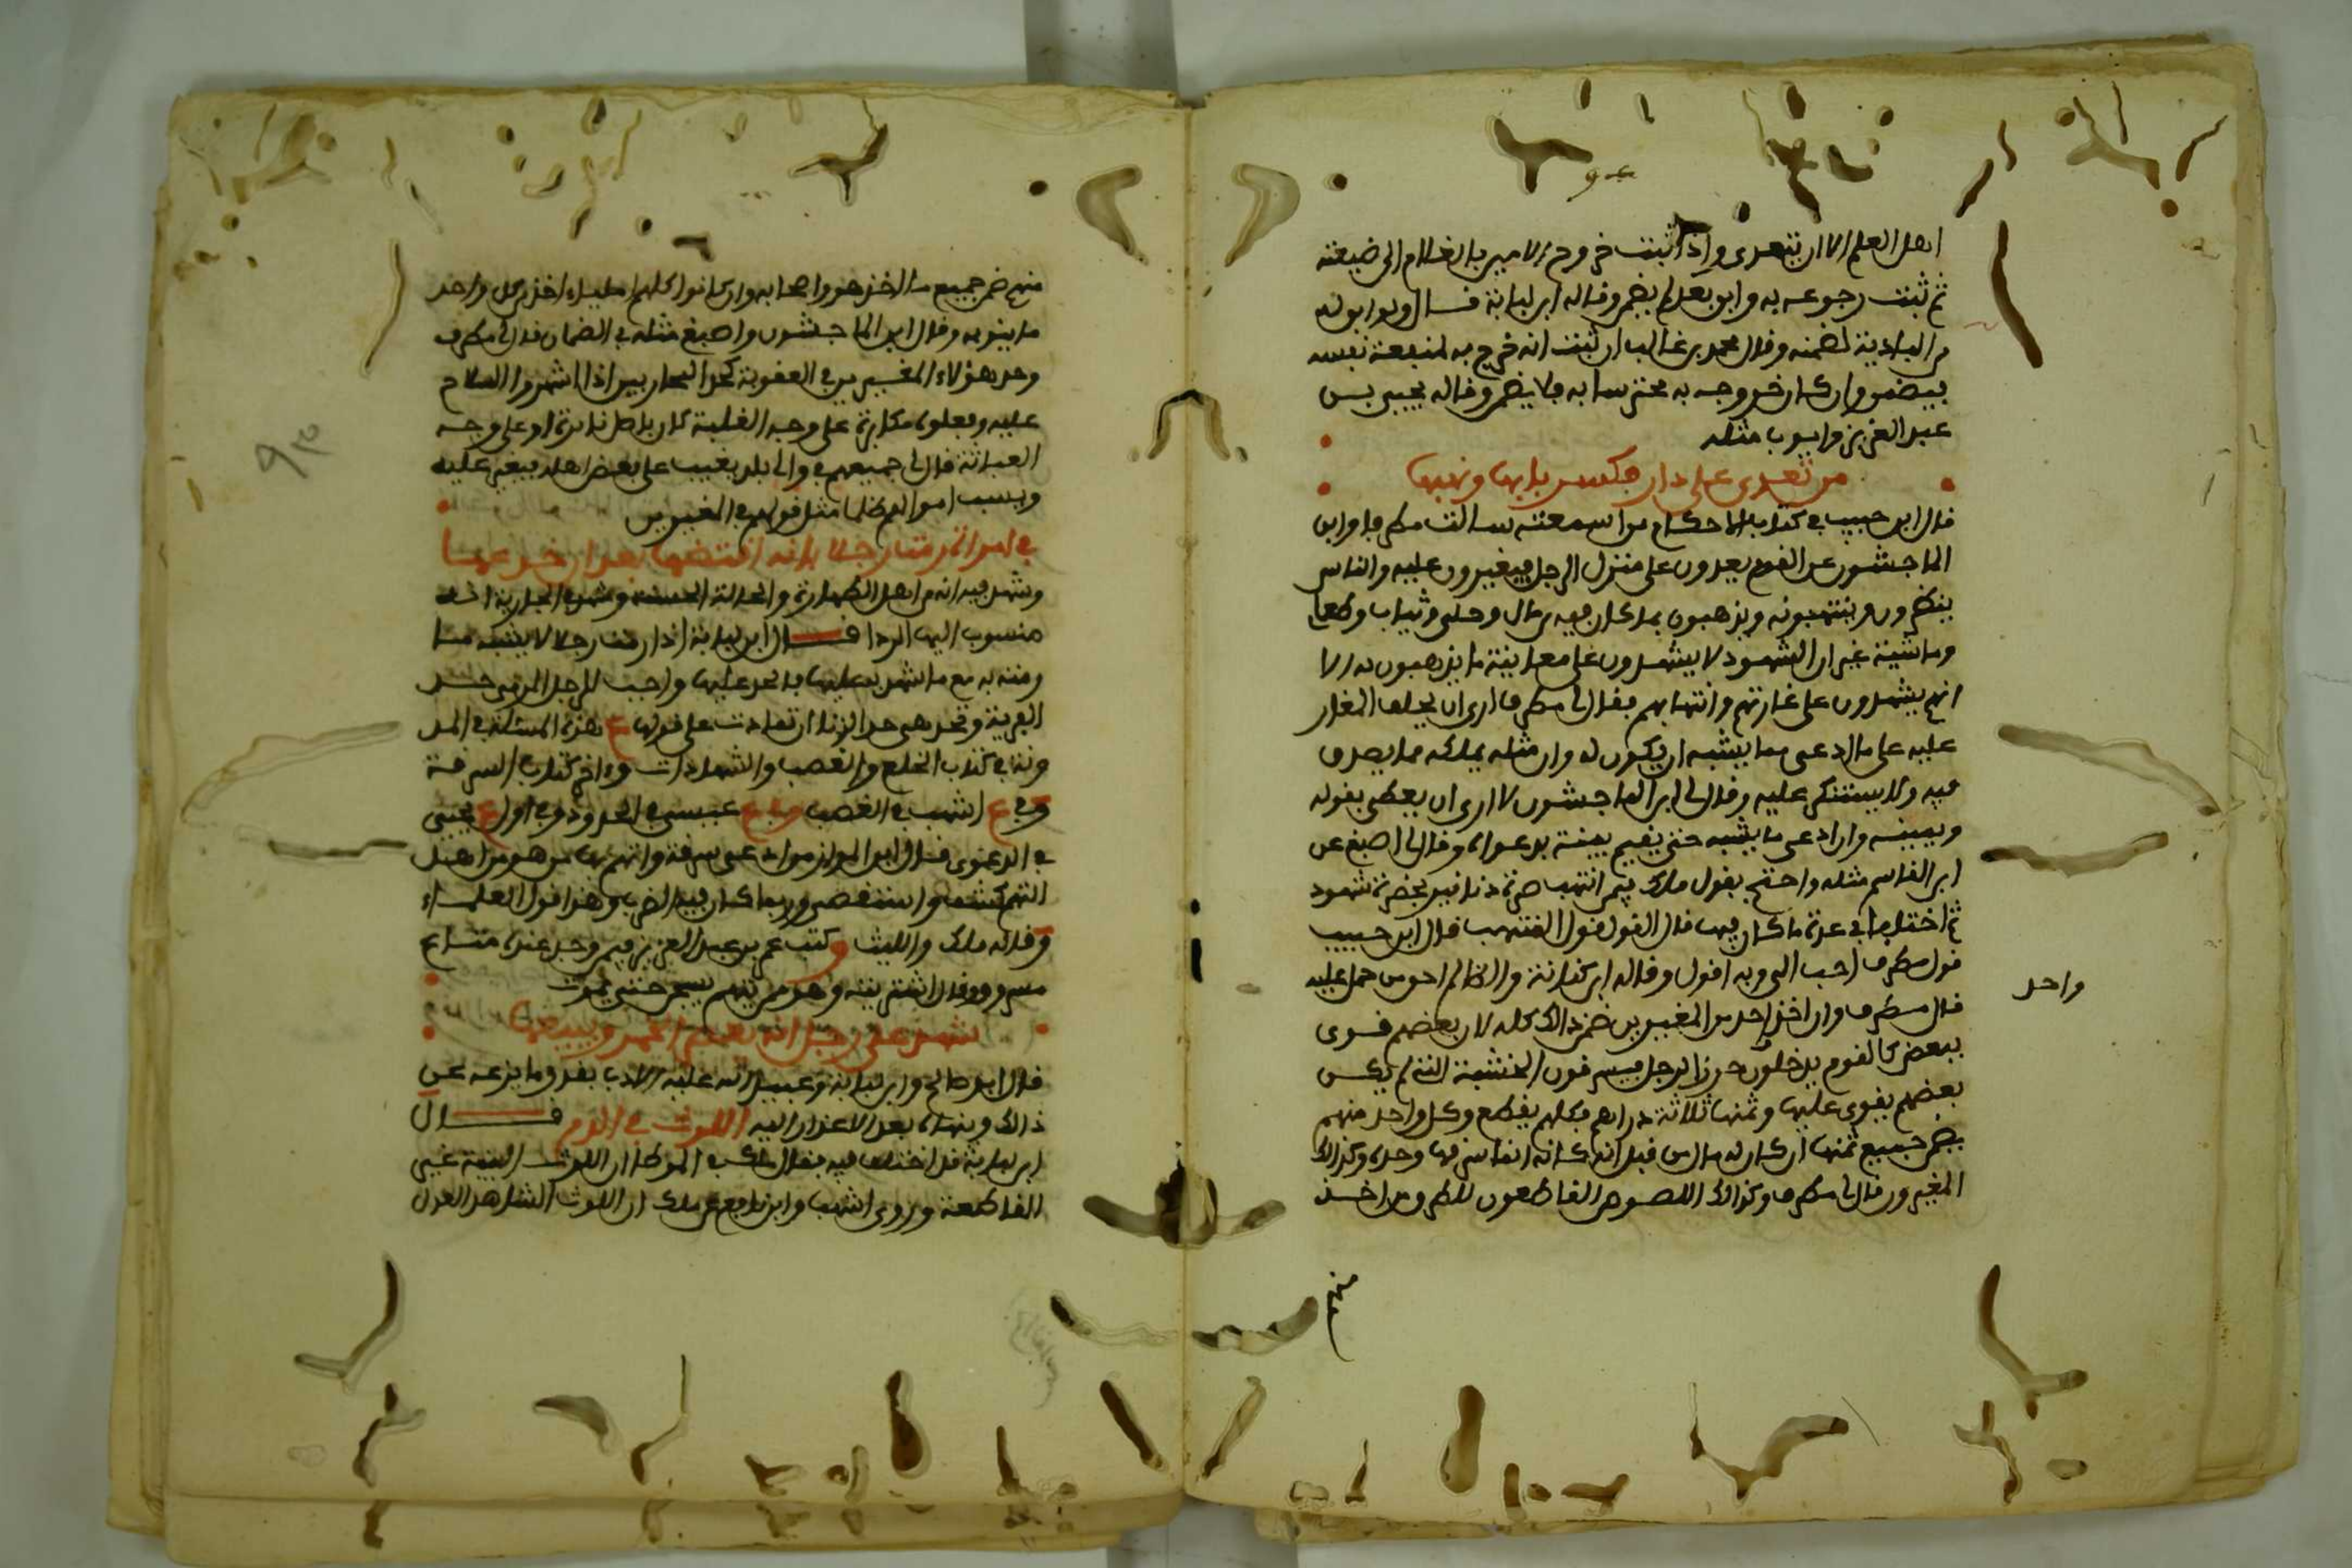 اهل العلم الا ان يتعدى واذا ثبت خروج الامير بالغلام الى ضيعته
ثم ثبت رجوعه به وابق بعد لم يضمن وقاله ابن لبابة قال ولو ابق له
من البادية لضمنه وقال محمد بن غالب ان ثبت انه خرج به لمنفعة نفسه
فيضمن وان كان خروجه به محترسا به فلا يضمن وقاله يحيى بن
عبد العزيز وايوب مثله
من تعدى على دار فكسر بابها ونهبها
قال ابن حبيب في كتاب الاحكام من اسمعته سالت مطرفا وابن
الماجشون عن القوم يعدون على منزل الرجل فيغيرون عليه والناس
ينظرون وينتهبونه ويذهبون بما كان فيه من مال وحلي وثياب وطعام
وماشية غير ان الشهود لا يشهدون على معاينة ما يذهبون به الا
انهم يشهدون على غارتهم وانتهابهم فقال لي مطرف ارى ان يحلف المغار
عليه على ما ادعى مما يشبه ان يكون له وان مثله يملكه مما يصدق
فيه ولا يستنكر عليه وقال لي ابن الماجشون لا ارى ان يعطى بقوله
ويمينه وان ادعى ما يشبه حتى يقيم بينة بدعواه وقال لي اصبغ عن
ابن القاسم مثله واحتج بقول ملك فيمن انتهب صرة دنانير بحضرة شهود
ثم اختلفا في عدة ما كان فيها قال القول قول المنتهب قال ابن حبيب
قول مطرف احب الي وبه اقول وقاله ابن كنانة والظالم احق من حمل عليه
واحد
قال مطرف وان اخذ احد من المغيرين ضمن ذالك كله لان بعضهم قوى
ببعض كالقوم يدخلون حرز الرجل فيسرقون الخشبة التي لم يكن
بعضهم يقوى عليها وثمنها ثلاثة دراهم فكلهم يقطع وكل واحد منهم
يضمن جميع ثمنها ان كان له مال من قبل انه كانه انما سرقها وحده وكذالك
المغيرون قال لي مطرف وكذالك اللصوص القاطعون للطرق من اخذ
منهم
منهم ضمن جميع ما اخذ هو واصحابه وان كانوا كلهم املياء اخذ من كل واحد
ما ينوبه وقال ابن الماجشون واصبغ مثله في الضمان قال لي مطرف
وحد هؤلاء المغيرين في العقوبة كحد المحاربين اذا اشهروا السلاح
عليه وفعلوه مكابرة على وجه الغلبة كان باصل نائرة او على وجه
العداثة قال لي جميعهم في والي بلد يغيب على بعض اهله فيغير عليه
وينسب اموالهم ظلما مثل قولهم في المغيرين
في امراة رمت رجلا بانه افتضها بعد ان خدعها
وشهد فيه انه من اهل الطهارة والحالة الحسنة وشهد في الجارية انه
منسوب اليها الردا قال ابن لبابة اذا رمت رجلا لا يشبه ما
رمته به مع ما شهد به عليها فالحد عليها واجب للرجل المرمى حد
الفرية وتحد هي حد الزنا ان تمادت على قولها ع هذه المسئلة في المد
ونة في كتاب الخلع والغصب والشهادات وءاخر كتاب السرقة
وفي ع اشهب في الغصب وفي ع عيسى في الحدود وفي اول ع يحيى
في الدعوى قال ابن المواز من ادعى سرقة واتهم بها من هو من اهل
التهم كشف واستقصى وربما كان فيه الضرب وهذا قول العلماء
وقاله ملك والليث وكتب عمر بن عبد العزيز فيمن وجد عنده متاع
مسروق وقال اشتريته وهو من يتهم يسجن حتى يموت
شهد على رجل انه يعصر الخمر ويبيعها
قال ابن صالح وابن لبابة وعبيد الله عليه الادب بقدر ما يزعه عن
ذالك وينهاه بعد الاعذار اليه اللوث في الدم قال
ابن لبابة قد اختلف فيه فقال ملك في الموطا ان اللوث البينة غير
القاطعة وروى اشهب وابن نافع عن ملك ان اللوث الشاهد العدل